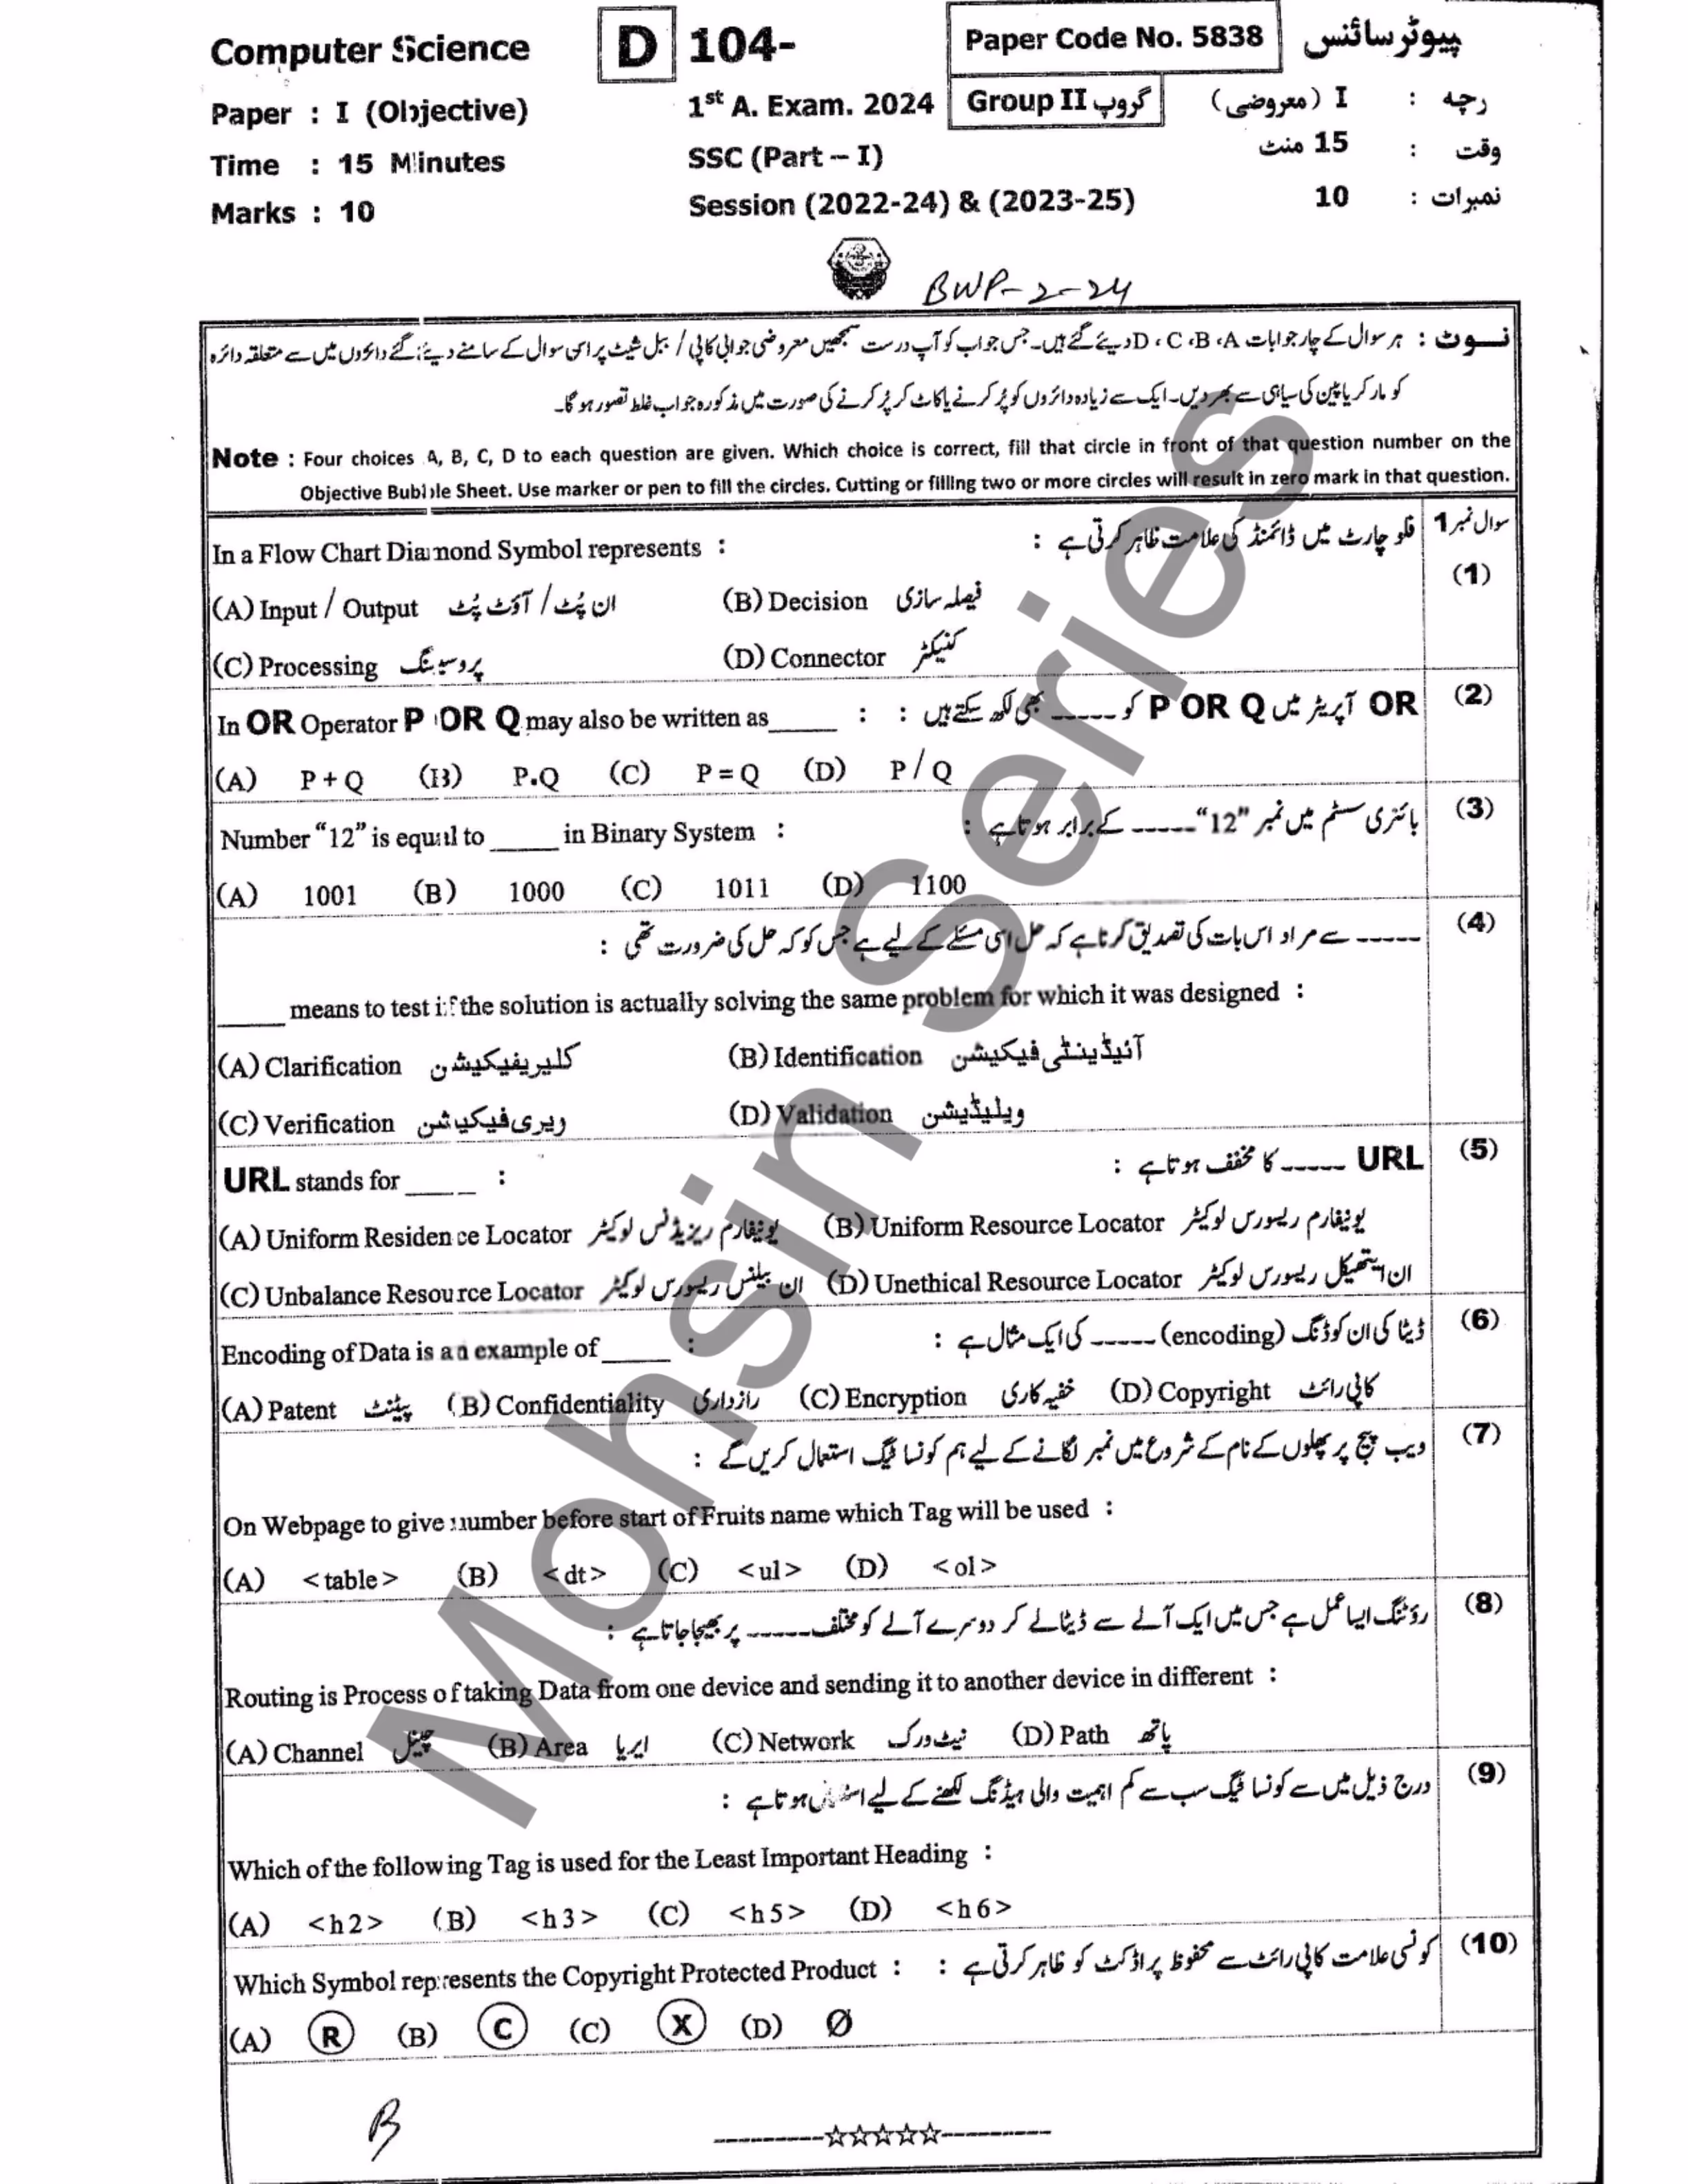 Computer Science D 104- Paper Code No. 5838 کمپیوٹر سائنس
Paper : I (Objective) 1st A. Exam. 2024 Group II گروپ I (معروضی) : پرچہ
Time : 15 Minutes SSC (Part – I) 15 منٹ : وقت
Marks : 10 Session (2022-24) & (2023-25) 10 : نمبرات
BWP-2-24
نوٹ : ہر سوال کے چار جوابات D ، C ،B ،A دیئے گئے ہیں۔ جس جواب کو آپ درست سمجھیں معروضی جوابی کاپی / ببل شیٹ پر اسی سوال کے سامنے دیئے گئے دائروں میں سے متعلقہ دائرہ
کو مارکر یا پین کی سیاہی سے بھر دیں۔ ایک سے زیادہ دائروں کو پُر کرنے یا کاٹ کر پُر کرنے کی صورت میں مذکورہ جواب غلط تصور ہو گا۔
Note : Four choices A, B, C, D to each question are given. Which choice is correct, fill that circle in front of that question number on the
Objective Bubble Sheet. Use marker or pen to fill the circles. Cutting or filling two or more circles will result in zero mark in that question.
سوال نمبر 1
In a Flow Chart Diamond Symbol represents : فلو چارٹ میں ڈائمنڈ کی علامت ظاہر کرتی ہے : (1)
(A) Input / Output ان پُٹ / آؤٹ پُٹ (B) Decision فیصلہ سازی
(C) Processing پروسیسنگ (D) Connector کنیکٹر
In OR Operator P OR Q may also be written as _____ : OR آپریٹر میں P OR Q کو ----- بھی لکھ سکتے ہیں : (2)
(A) P + Q (B) P.Q (C) P = Q (D) P / Q
Number “12” is equal to _____ in Binary System : بائنری سسٹم میں نمبر “12” ----- کے برابر ہوتا ہے : (3)
(A) 1001 (B) 1000 (C) 1011 (D) 1100
----- سے مراد اس بات کی تصدیق کرنا ہے کہ حل اسی مسئلے کے لیے ہے جس کو کہ حل کی ضرورت تھی : (4)
_____ means to test if the solution is actually solving the same problem for which it was designed :
(A) Clarification کلیریفیکیشن (B) Identification آئیڈینٹی فیکیشن
(C) Verification ویری فیکیشن (D) Validation ویلیڈیشن
URL stands for _____ : URL ----- کا مخفف ہوتا ہے : (5)
(A) Uniform Residence Locator یونیفارم ریزیڈنس لوکیٹر (B) Uniform Resource Locator یونیفارم ریسورس لوکیٹر
(C) Unbalance Resource Locator ان بیلنس ریسورس لوکیٹر (D) Unethical Resource Locator ان ایتھیکل ریسورس لوکیٹر
Encoding of Data is an example of _____ : ڈیٹا کی ان کوڈنگ (encoding) ----- کی ایک مثال ہے : (6)
(A) Patent پیٹنٹ (B) Confidentiality رازداری (C) Encryption خفیہ کاری (D) Copyright کاپی رائٹ
ویب پیج پر پھلوں کے نام کے شروع میں نمبر لگانے کے لیے ہم کونسا ٹیگ استعمال کریں گے : (7)
On Webpage to give number before start of Fruits name which Tag will be used :
(A) <table> (B) <dt> (C) <ul> (D) <ol>
روٹنگ ایسا عمل ہے جس میں ایک آلے سے ڈیٹا لے کر دوسرے آلے کو مختلف ----- پر بھیجا جاتا ہے : (8)
Routing is Process of taking Data from one device and sending it to another device in different :
(A) Channel چینل (B) Area ایریا (C) Network نیٹ ورک (D) Path پاتھ
درج ذیل میں سے کونسا ٹیگ سب سے کم اہمیت والی ہیڈنگ لکھنے کے لیے ہوتا ہے : (9)
Which of the following Tag is used for the Least Important Heading :
(A) <h2> (B) <h3> (C) <h5> (D) <h6>
Which Symbol represents the Copyright Protected Product : کونسی علامت کاپی رائٹ سے محفوظ پراڈکٹ کو ظاہر کرتی ہے : (10)
(A) Ⓡ (B) Ⓒ (C) Ⓧ (D) Ø
B
----------☆☆☆☆☆----------
Mohsin Series